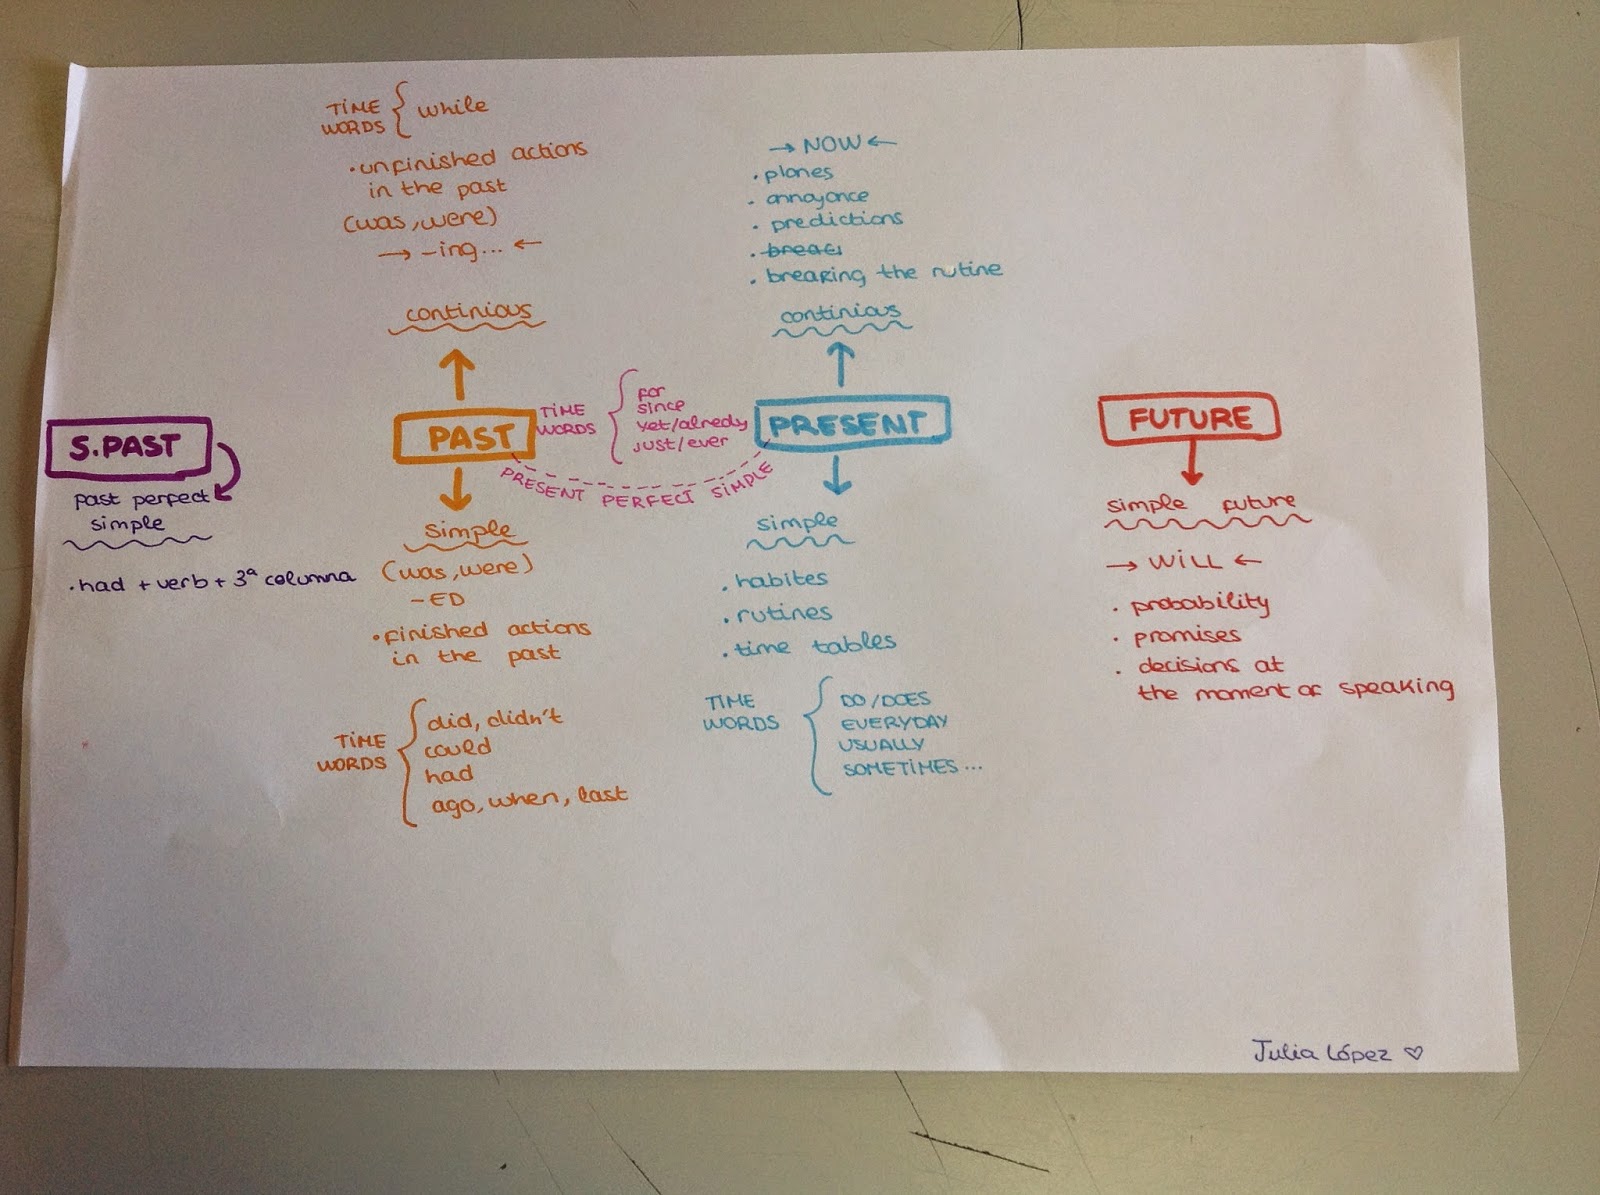 TIME
WORDS
while
• unfinished actions
in the past
(was, were)
→ -ing... ←
continious
→ NOW ←
• planes
• annoyance
• predictions
• breaking the rutine
continious
S. PAST
past perfect
simple
• had + verb + 3ª columna
PAST
TIME
WORDS
for
since
yet/alredy
just/ever
PRESENT PERFECT SIMPLE
PRESENT
FUTURE
simple
(was, were)
-ED
• finished actions
in the past
TIME
WORDS
did, didn't
could
had
ago, when, last
simple
• habites
• rutines
• time tables
TIME
WORDS
DO/DOES
EVERYDAY
USUALLY
SOMETIMES...
simple future
→ WILL ←
• probability
• promises
• decisions at
the moment of speaking
Julia López ♡